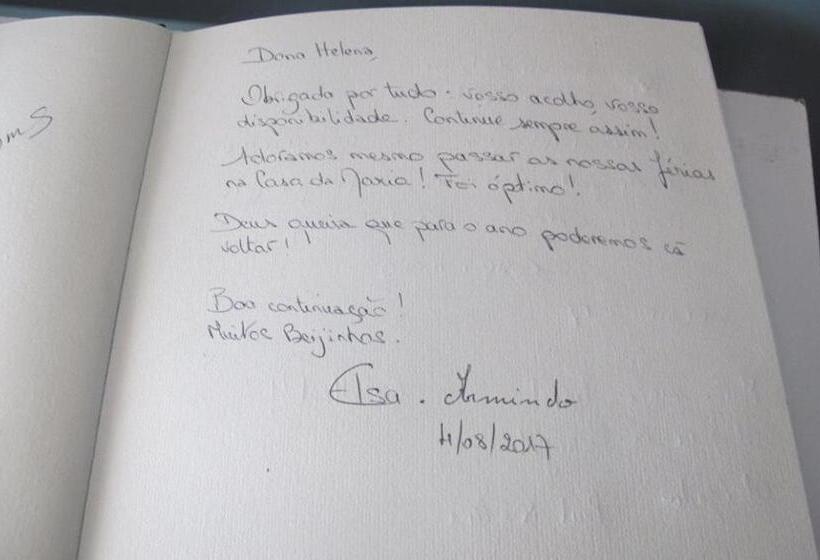 omS
Dona Helena,
Obrigada por tudo. vosso acolho, vosso
disponibilidade. Continue sempre assim!
Adoramos mesmo passar as nossas férias
na Casa da Maria! Foi óptimo!
Deus queira que para o ano poderemos cá
voltar!
Boa continuação!
Muitos Beijinhos.
Elsa. Armindo
4/08/2017